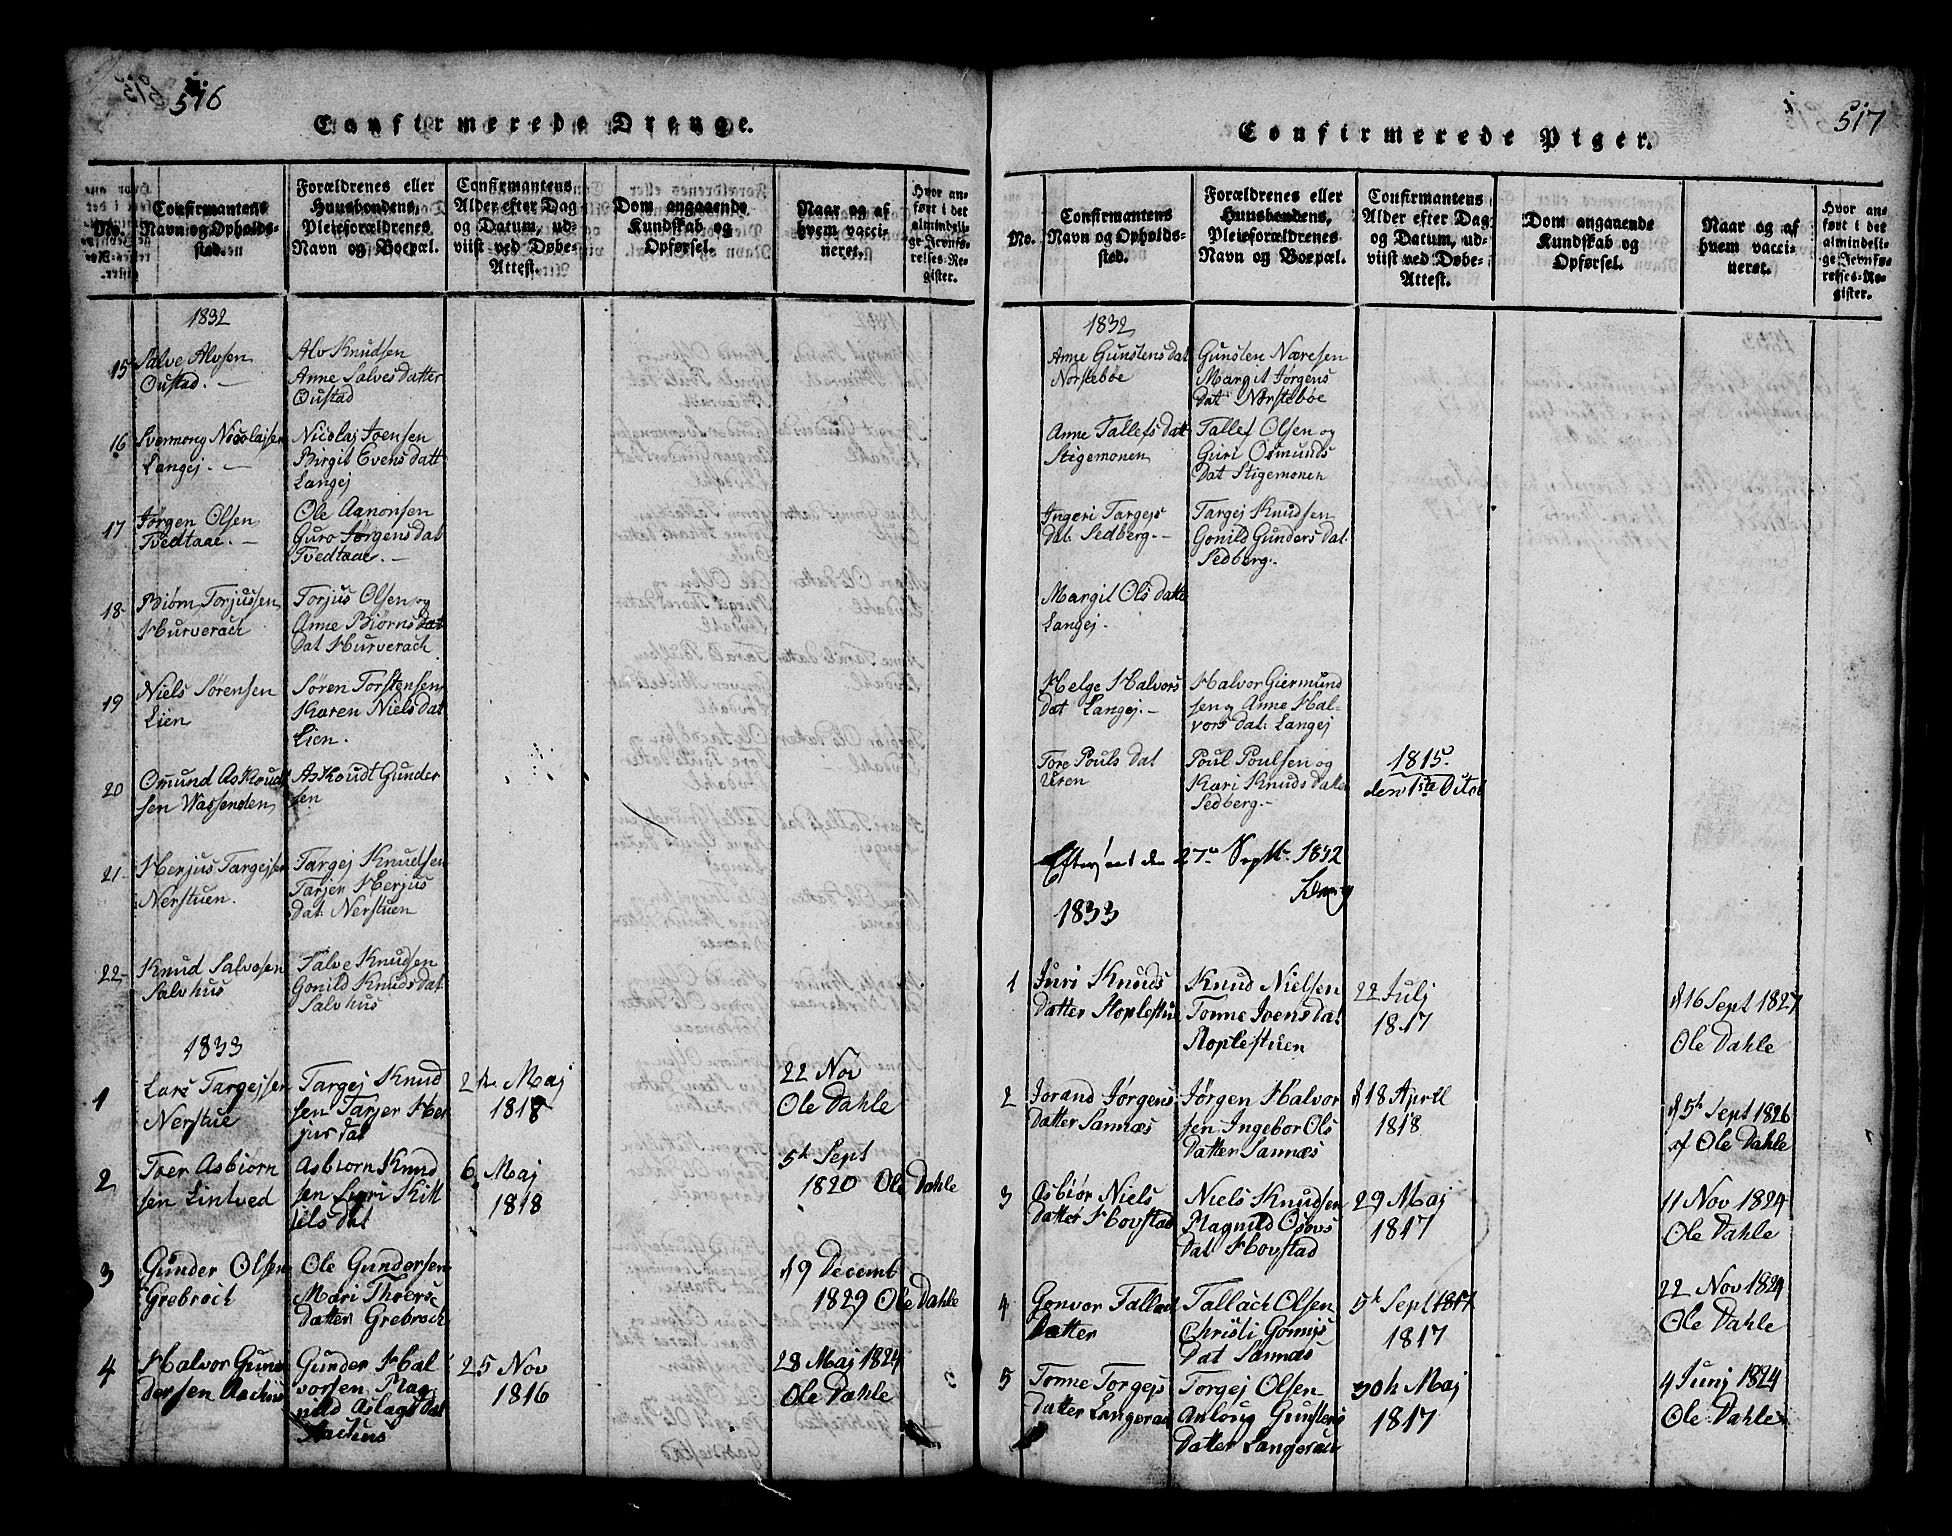 516
Confirmerede Drenge.
No.
Confirmantens
Navn og Opholds-
sted.
Forældrenes eller
Huusbondens,
Pleieforældrenes
Navn og Boepæl.
Confirmantens
Alder efter Dag
og Datum, ud-
viist ved Døbe-
Attest.
Dom angaaende
Kundskab og
Opførsel.
Naar og af
hvem vacci-
neret.
Hvor an-
ført i det
almindeli-
ge Jevnfø-
relses-Re-
gister.
1832
15 Salve Alvsen
Oustad. —
Alv Knudsen
Anne Salvesdatter
Oustad
16 Svermong Nicolajsen
Langej. —
Nicolaj Joensen
Birgit Evensdatt
Langej
17 Jørgen Olsen
Tvedtaae. —
Ole Aanonsen
Guro Jørgensdat
Tvedtaae. —
18- Biørn Torjussen
Hurverach
Torjus Olsen og
Anne Biørnsdat
dat Hurverach
19 Niels Sørensen
Lien
Søren Torstensen
Karen Nielsdat
Lien.
20 Omund Askoudt
sen Wassenden
Askoudt Gunder
sen
21- Herjus Targejsen
Nerstuen.
Targej Knudsen
Tarjer Herjus
dat: Nerstuen
22- Knud Salvesen
Salvhus
Salve Knudsen
Gonild Knudsdat
Salvhus
1833
1 Lars Targejsen
Nerstue
Targej Knud
sen Tarjer Her
jusdat
24 Maj
1818
22 Nov
Ole Dahle
2 Tver Asbiorn
sen Lintved
Asbiorn Knud
sen Ligri Kitt
elsdat
6 Maj
1818
5h Sept
1820 Ole Dahle
3 Gunder Olsen
Grebroch
Ole Gundersen
Mari Thores
datter Grebroch
d 9 Decemb
1829 Ole Dahle
4 Halvor Gun
dersen Aachus
Gunder Hal
vorsen Mag
nild Aslagsdat
Aachus
25 Nov
1816
28 Maj 1824
Ole Dahle
517
Confirmerede Piger.
No.
Confirmantens
Navn og Opholds-
sted.
Forældrenes eller
Huusbondens,
Pleieforældrenes
Navn og Boepæl.
Confirmantens
Alder efter Dag
og Datum, ud-
viist ved Døbe-
Attest.
Dom angaaende
Kundskab og
Opførsel.
Naar og af
hvem vacci-
neret.
Hvor an-
ført i det
almindeli-
ge Jevnfø-
relses-Re-
gister.
1832
Anne Gunstensdat
Norstebøe
Gunsten Næresen
Margit Jørgens
dat Norstebøe
Anne Tallefsdatt
Stigemonen
Tallef Olsen og
Guri Osmunds
dat Stigemonen
Ingeri Targejs
dat: Sedberg. —
Targej Knudsen
Gonild Gundersdat:
Sedberg. —
Margit Olsdatte
Langej.
Helge Halvors
dat Langej. —
Halvor Giermund
sen og Anne Hal-
vorsdat: Langej
Tore Pouls dat
Uren
Poul Poulsen og
Kari Knudsdatter
Sedberg. —
1815
den 1ste Octob
Efterseet den 27de Septbr. 1832
1833
1 Juri Knuds
datter Hoplestue
Knud Nielsen
Tonne Joensdat
Hoplestuen
22 Julj
1817
d 16 Sept 1827
Ole Dahle
2 Jorand Jørgens
datter Sannæs
Jørgen Halvor
sen Ingebor Ols
datter Sannæs
d 18 Aprll
1818
d 5h Sept 1826
af Ole Dahle
3 Asbiør Niels
datter Hovstad
Niels Knudsen
Magnild Osovs
dat Hovstad
29 Maj
1817
11 Nov 1824
Ole Dahle
4 Gonvor Tallac
datter
Tallach Olsen
Christi Gonnjs
dat Sannæs
5h Sept 1817
1817
22 Nov 1824
Ole Dahle
5 Tonne Torgejs
datter Langerac
Torgej Olsen
Anloug Gunstens
datter Langerac
30h Maj
1817
4 Junj 1824
Ole Dahle